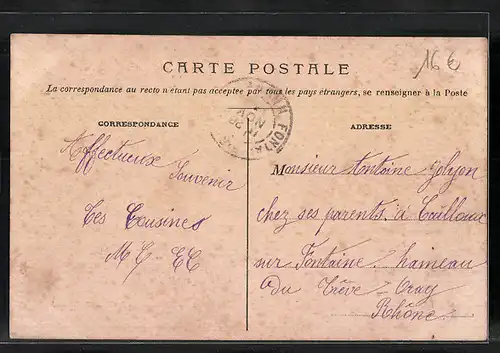 16 €
CARTE POSTALE
La correspondance au recto n'étant pas acceptée par tous les pays étrangers, se renseigner à la Poste
CORRESPONDANCE
ADRESSE
Affectueux
Souvenir
Tes Cousines
MC. CC
FONTAI
NOV
Monsieur Fontaine
chez ses parents, à Cailloux
sur Fontaine. hameau
du Crève-Oray
Rhône